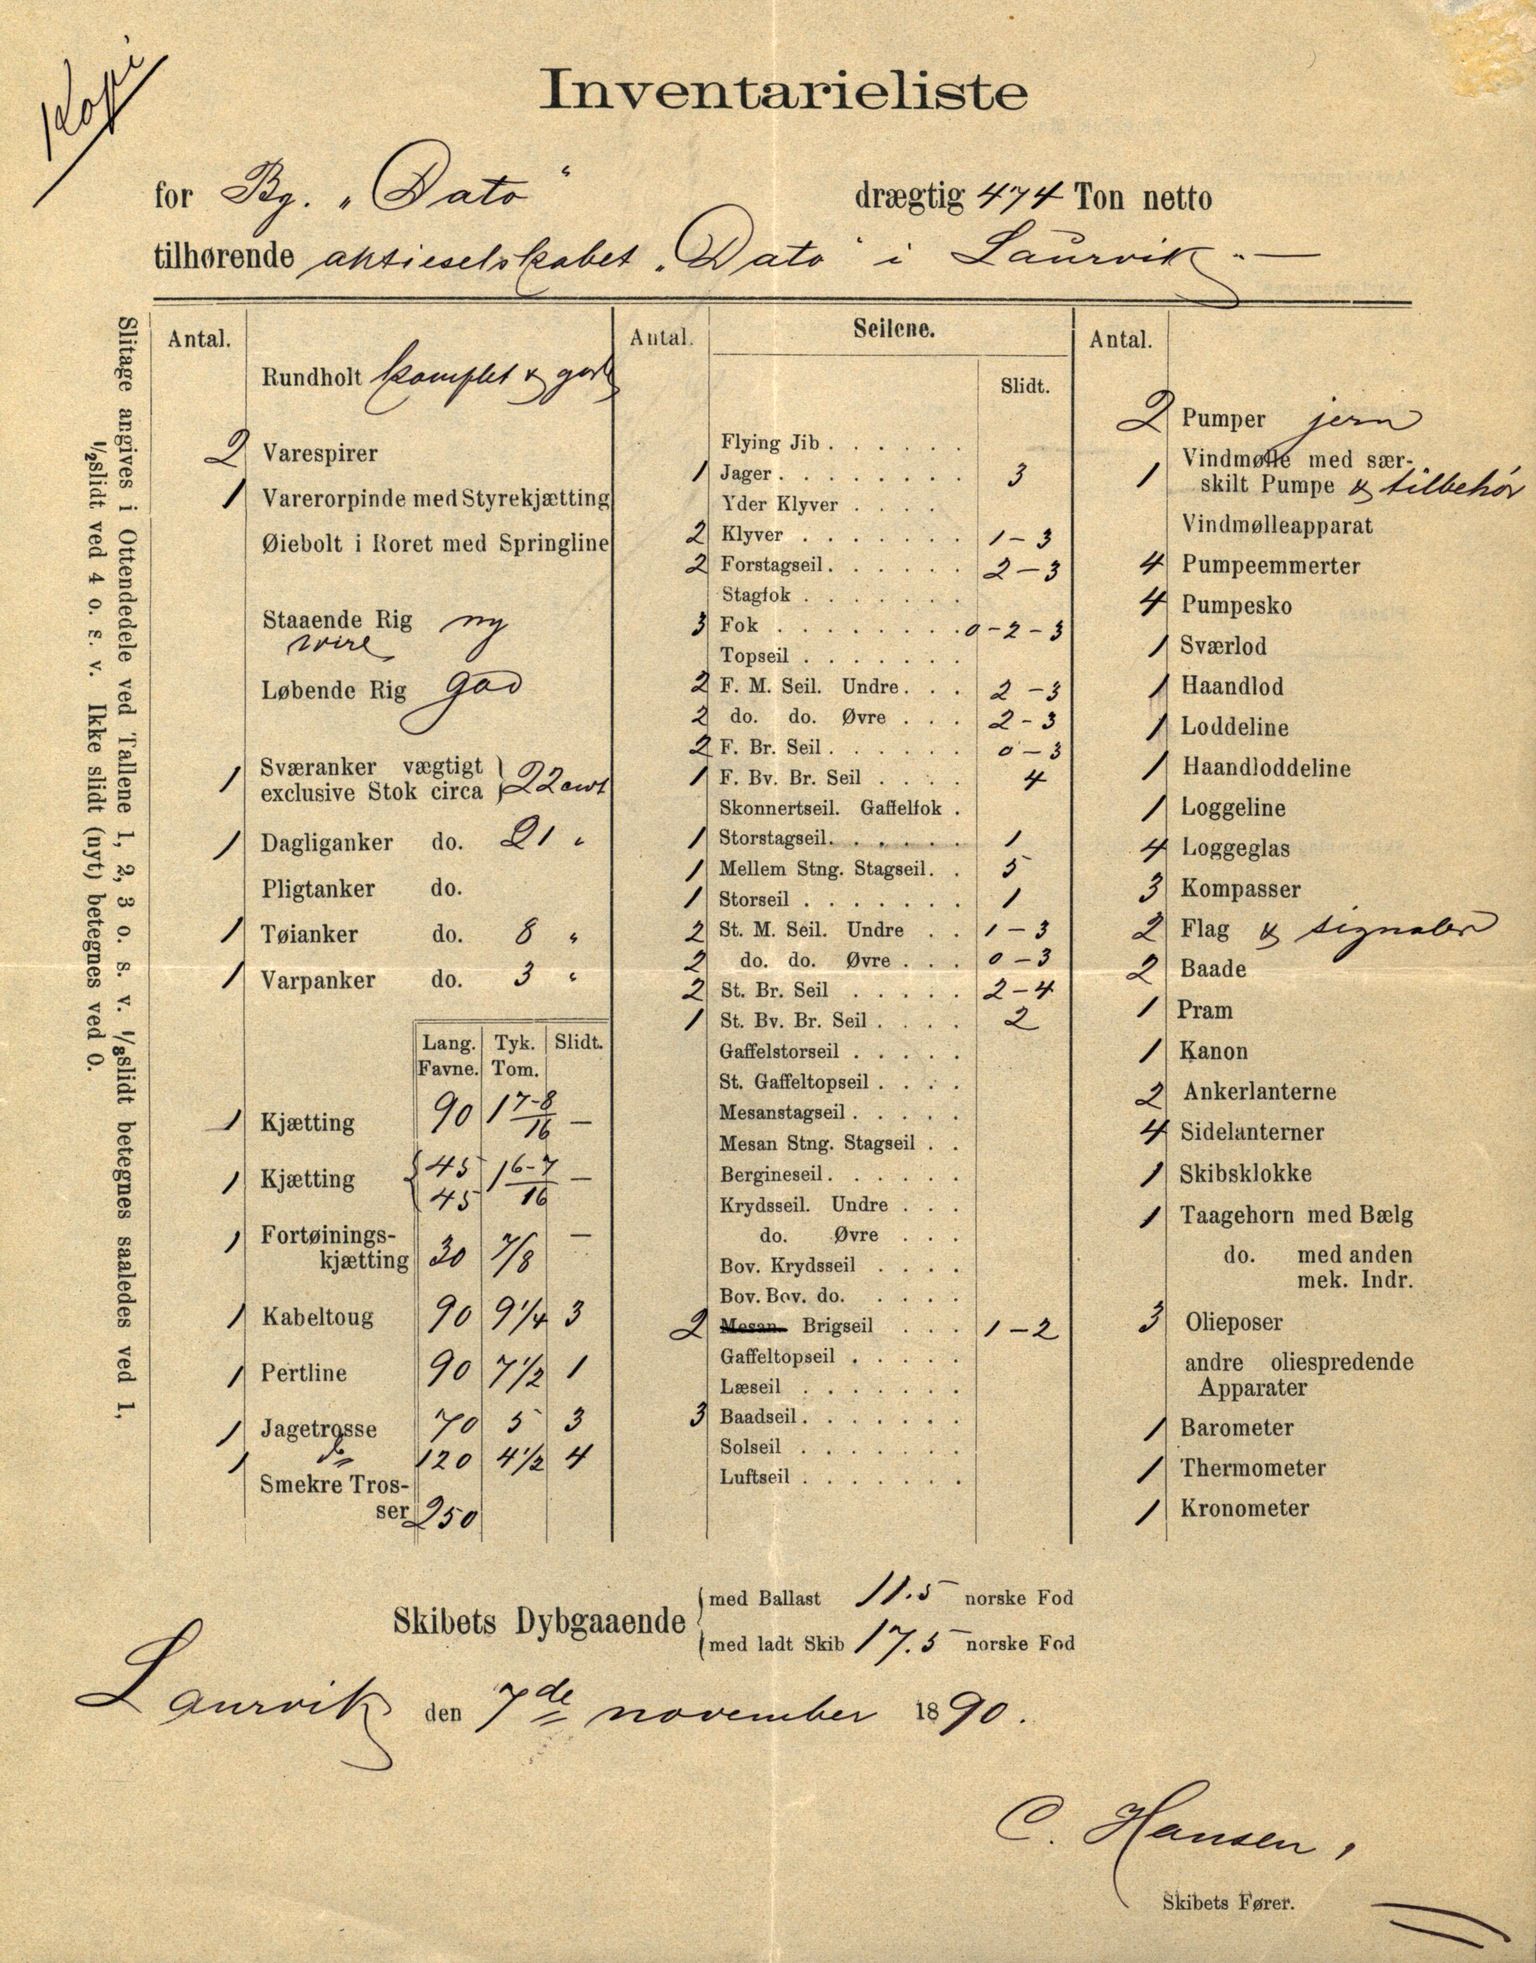 Kopi
Inventarieliste
for Bg. „Dato“ drægtig 474 Ton netto
tilhørende aktieselskabet „Dato“ i Laurvik.
Slitage angives i Ottendedele ved Tallene 1, 2, 3 o. s. v. ⅛slidt betegnes saaledes ved 1,
½slidt ved 4 o. s. v. Ikke slidt (nyt) betegnes ved 0.
Antal.
Rundholt komplet & god
2 Varespirer
1 Varerorpinde med Styrekjætting
Øiebolt i Roret med Springline
Staaende Rig ny
wire
Løbende Rig god
1 Sværanker vægtigt
exclusive Stok circa 22 cwt
1 Dagliganker do. 21 "
Pligtanker do.
1 Tøianker do. 8 "
1 Varpanker do. 3 "
Lang. Tyk. Slidt.
Favne. Tom.
1 Kjætting 90 1 7-8/16 —
1 Kjætting 45 1 6-7/16 —
45
1 Fortøinings-
kjætting 30 7/8 —
1 Kabeltoug 90 9¼ 3
1 Pertline 90 7½ 1
1 Jagetrosse 70 5 3
1 do 120 4½ 4
Smekre Tros-
ser 250
Antal. Seilene.
Slidt.
Flying Jib . . . . .
1 Jager . . . . . . . 3
Yder Klyver . . . .
2 Klyver . . . . . . 1-3
2 Forstagseil . . . . . 2-3
Stagfok . . . . . .
3 Fok . . . . . . . 0-2-3
Topseil . . . . . .
2 F. M. Seil. Undre . . . 2-3
2 do. do. Øvre . . . 2-3
2 F. Br. Seil . . . . . 0-3
1 F. Bv. Br. Seil . . . . 4
Skonnertseil. Gaffelfok .
1 Storstagseil . . . . . 1
1 Mellem Stng. Stagseil . . 5
1 Storseil . . . . . . 1
2 St. M. Seil. Undre . . 1-3
2 do. do. Øvre . . . 0-3
2 St. Br. Seil . . . . . 2-4
1 St. Bv. Br. Seil . . . . 2
Gaffelstorseil . . . . .
St. Gaffeltopseil . . . .
Mesanstagseil . . . . .
Mesan Stng. Stagseil . .
Bergineseil . . . . . .
Krydsseil. Undre . . .
do. Øvre . . .
Bov. Krydsseil . . . .
Bov. Bov. do. . . . .
2 Mesan Brigseil . . . 1-2
Gaffeltopseil . . . . .
Læseil . . . . . .
3 Baadseil . . . . . .
Solseil . . . . . .
Luftseil . . . . . .
Antal.
2 Pumper jern
1 Vindmølle med sær-
skilt Pumpe & tilbehør
Vindmølleapparat
4 Pumpeemmerter
4 Pumpesko
1 Sværlod
1 Haandlod
1 Loddeline
1 Haandloddeline
1 Loggeline
4 Loggeglas
3 Kompasser
2 Flag & signaler
2 Baade
1 Pram
1 Kanon
2 Ankerlanterne
4 Sidelanterner
1 Skibsklokke
1 Taagehorn med Bælg
do. med anden
mek. Indr.
3 Olieposer
andre oliespredende
Apparater
1 Barometer
1 Thermometer
1 Kronometer
Skibets Dybgaaende
med Ballast 11.5 norske Fod
med ladt Skib 17.5 norske Fod
Laurvik den 7de november 1890.
C. Hansen,
Skibets Fører.